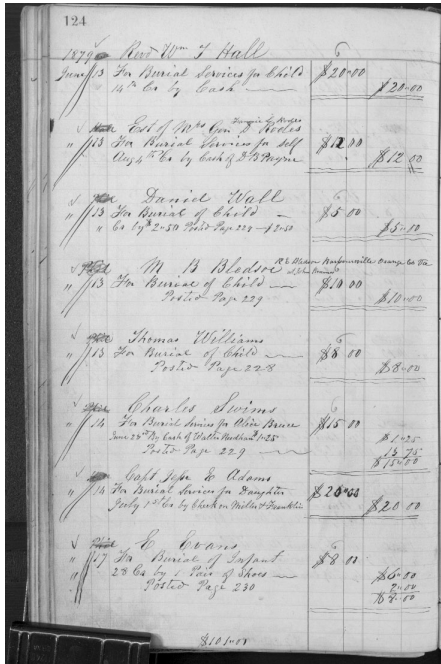 124
1879 Revd Wm T Hall 6
June 13 For Burial Services for Child $20.00
14th Cr by Cash $20.00
Est of Mrs Geo D Rodes
" 13 For Burial Services for Self $12.00
Aug 4th Cr by Cash of D B Payne $12.00
Daniel Wall 6
" 13 For Burial of Child $5.00
" Cr by 2.50 Posted Page 229 - $2.50 $5.00
M B Bledsoe Orange Co Va
" 13 For Burial of Child $10.00
Posted Page 229 $10.00
Thomas Williams 6
" 13 For Burial of Child $8.00
Posted Page 228 $8.00
Charles Swims 6
" 14 For Burial Services for Alice Bruce $15.00
June 23rd By Cash of Walter $1.25 $1.25
Posted Page 229 13 75
$15.00
Capt Jesse E Adams
" 14 For Burial Services for Daughter $20.00
July 1st Cr by Check on Miller & Franklin $20.00
E Evans 6
" 17 For Burial of Infant $8.00
" 28 Cr by 1 Pair of Shoes $6.00
Posted Page 230 2.00
$8.00
$101.00